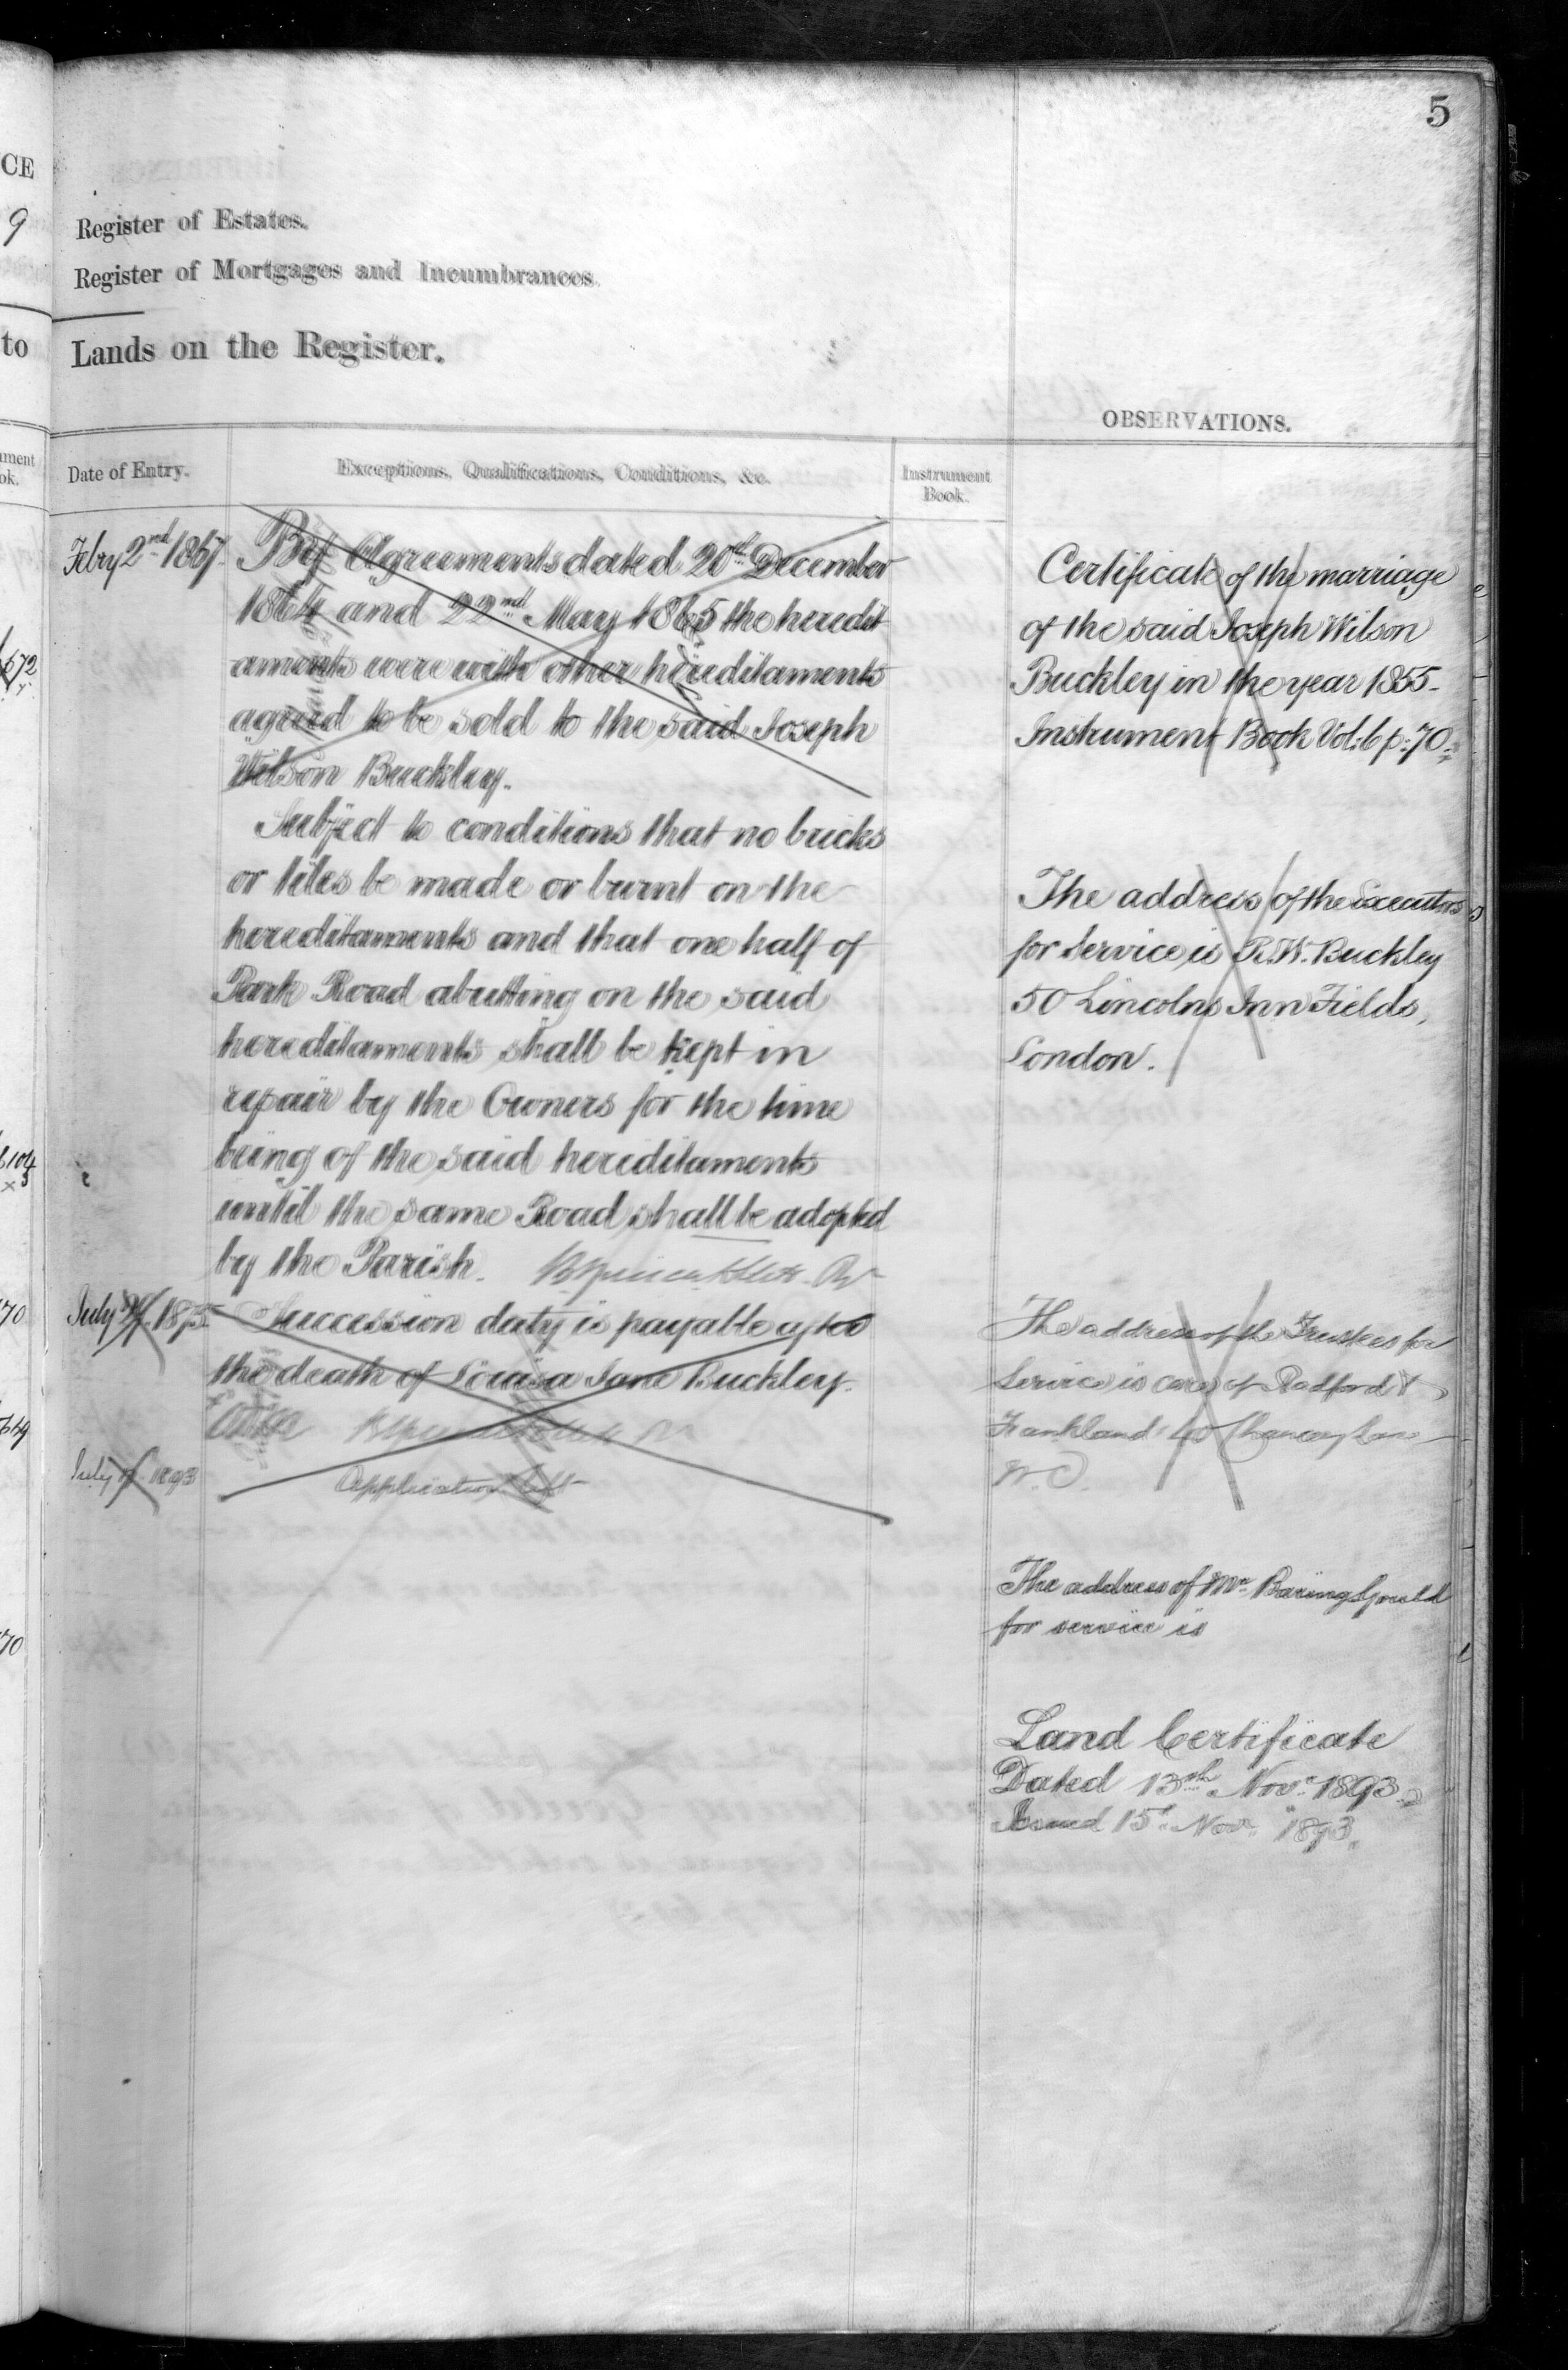 5
CE
9
Register of Estates.
Register of Mortgages and Incumbrances.
to
Lands on the Register.
OBSERVATIONS.
Date of Entry.
Exceptions, Qualifications, Conditions, &c.
Instrument
Book.
Febry 2nd 1867.
By Agreements dated 20th December
1864 and 22nd May 1865 the heredit
aments were with other hereditaments
agreed to be sold to the said Joseph
Wilson Buckley.
Subject to conditions that no bricks
or tiles be made or burnt on the
hereditaments and that one half of
Park Road abutting on the said
hereditaments shall be kept in
repair by the Owners for the time
being of the said hereditaments
until the same Road shall be adopted
by the Parish.
July 1875.
Succession duty is payable after
the death of Louisa Jane Buckley.
July 1893
Application left
Certificate of the marriage
of the said Joseph Wilson
Buckley in the year 1855.
Instrument Book Vol: 6 p: 70.
The address of the Executors
for Service is R.W. Buckley
50 Lincolns Inn Fields,
London.
The address of the Trustees for
Service is care of Radford &
Frankland 40 Chancery Lane
W.C.
The address of Mr. Baring Gould
for service is
Land Certificate
Dated 13th Nov. 1893.
Issued 15th Nov. 1893.